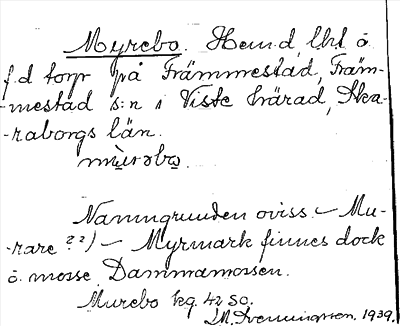 Myrebo. Hemd, lht o.
f.d torp på Främmestad, Främ-
-mestad s:n i Viste härad, Ska-
-raborgs län.
mùrəbo
Namngrunden oviss. (- Mu-
-rare ??) - Myrmark finnes dock
o. mosse. Dammamossen.
Murebo kg 42 SO.
Svenningson. 1939.